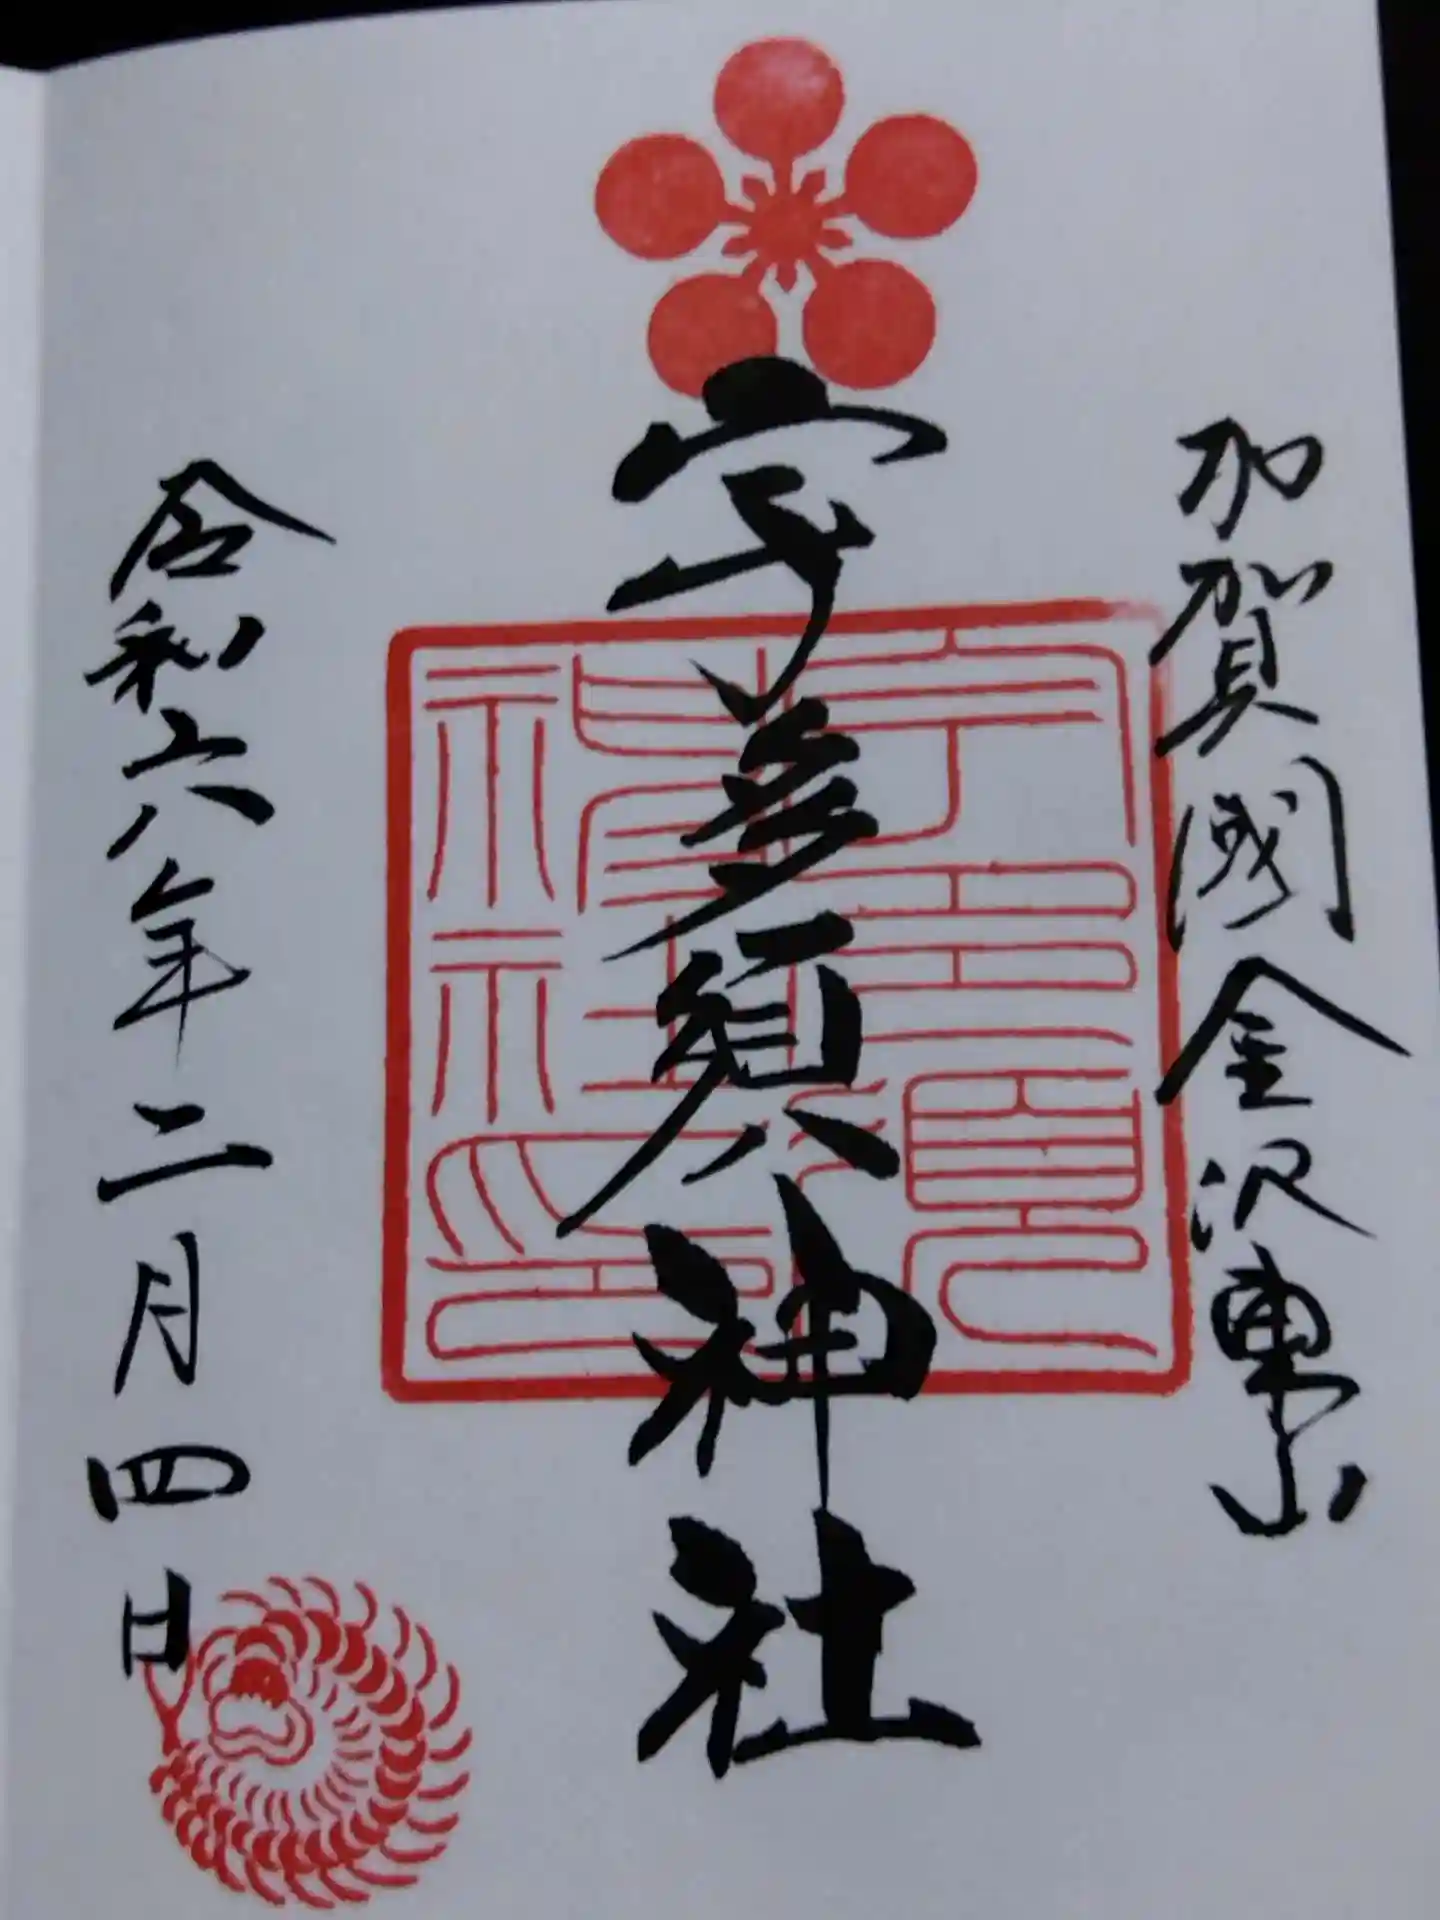 加賀國金沢東山
宇多須神社
宇多須神社印
令和六年二月四日